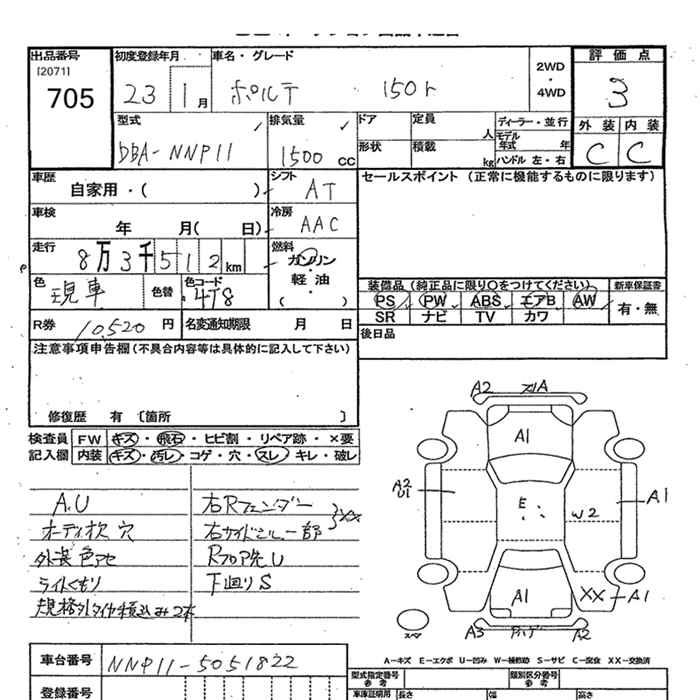 出品番号
[2071]
705
初度登録年月
23 1月
車名・グレード
ポルテ 150r
2WD
・
4WD
評価点
3
外装 内装
C C
型式
DBA-NNP11
排気量
1500 cc
ドア
形状
定員
人
積載
kg
ディーラー・並行
モデル
年式 年
ハンドル 左・右
車歴
自家用・( )
シフト
AT
セールスポイント (正常に機能するものに限ります)
車検
年 月( 日)
冷房
AAC
走行
8万3千512km
燃料
ガソリン
軽油
( )
色
現車
色替
色コード
4T8
装備品 (純正品に限り○をつけてください)
新車保証書
PS PW ABS エアB AW
有・無
SR ナビ TV カワ
R券 10520 円
名変通知期限 月 日
後日品
注意事項申告欄 (不具合内容等は具体的に記入して下さい)
修復歴 有 〔箇所 〕
検査員
記入欄
FW キズ・飛石・ヒビ割・リペア跡・×要
内装 キズ・汚レ・コゲ・穴・スレ・キレ・破レ
A.U
オーディオ枕 穴
外装 色アセ
ライトくもり
規格外タイヤ積込み2本
右Rフェンダー
右サイドシルー部
XX
Rフロア先U
下回りS
A2
A1
A2
U1
E
W2
A1
A1
XX
A1
スペア
A3
A2
A-キズ E-エクボ U-凹み W-補修跡 S-サビ C-腐食 XX-交換済
車台番号
NNP11-5051822
登録番号
型式指定番号
参考
類別区分番号
参考
車庫証明用
長さ
幅
高さ